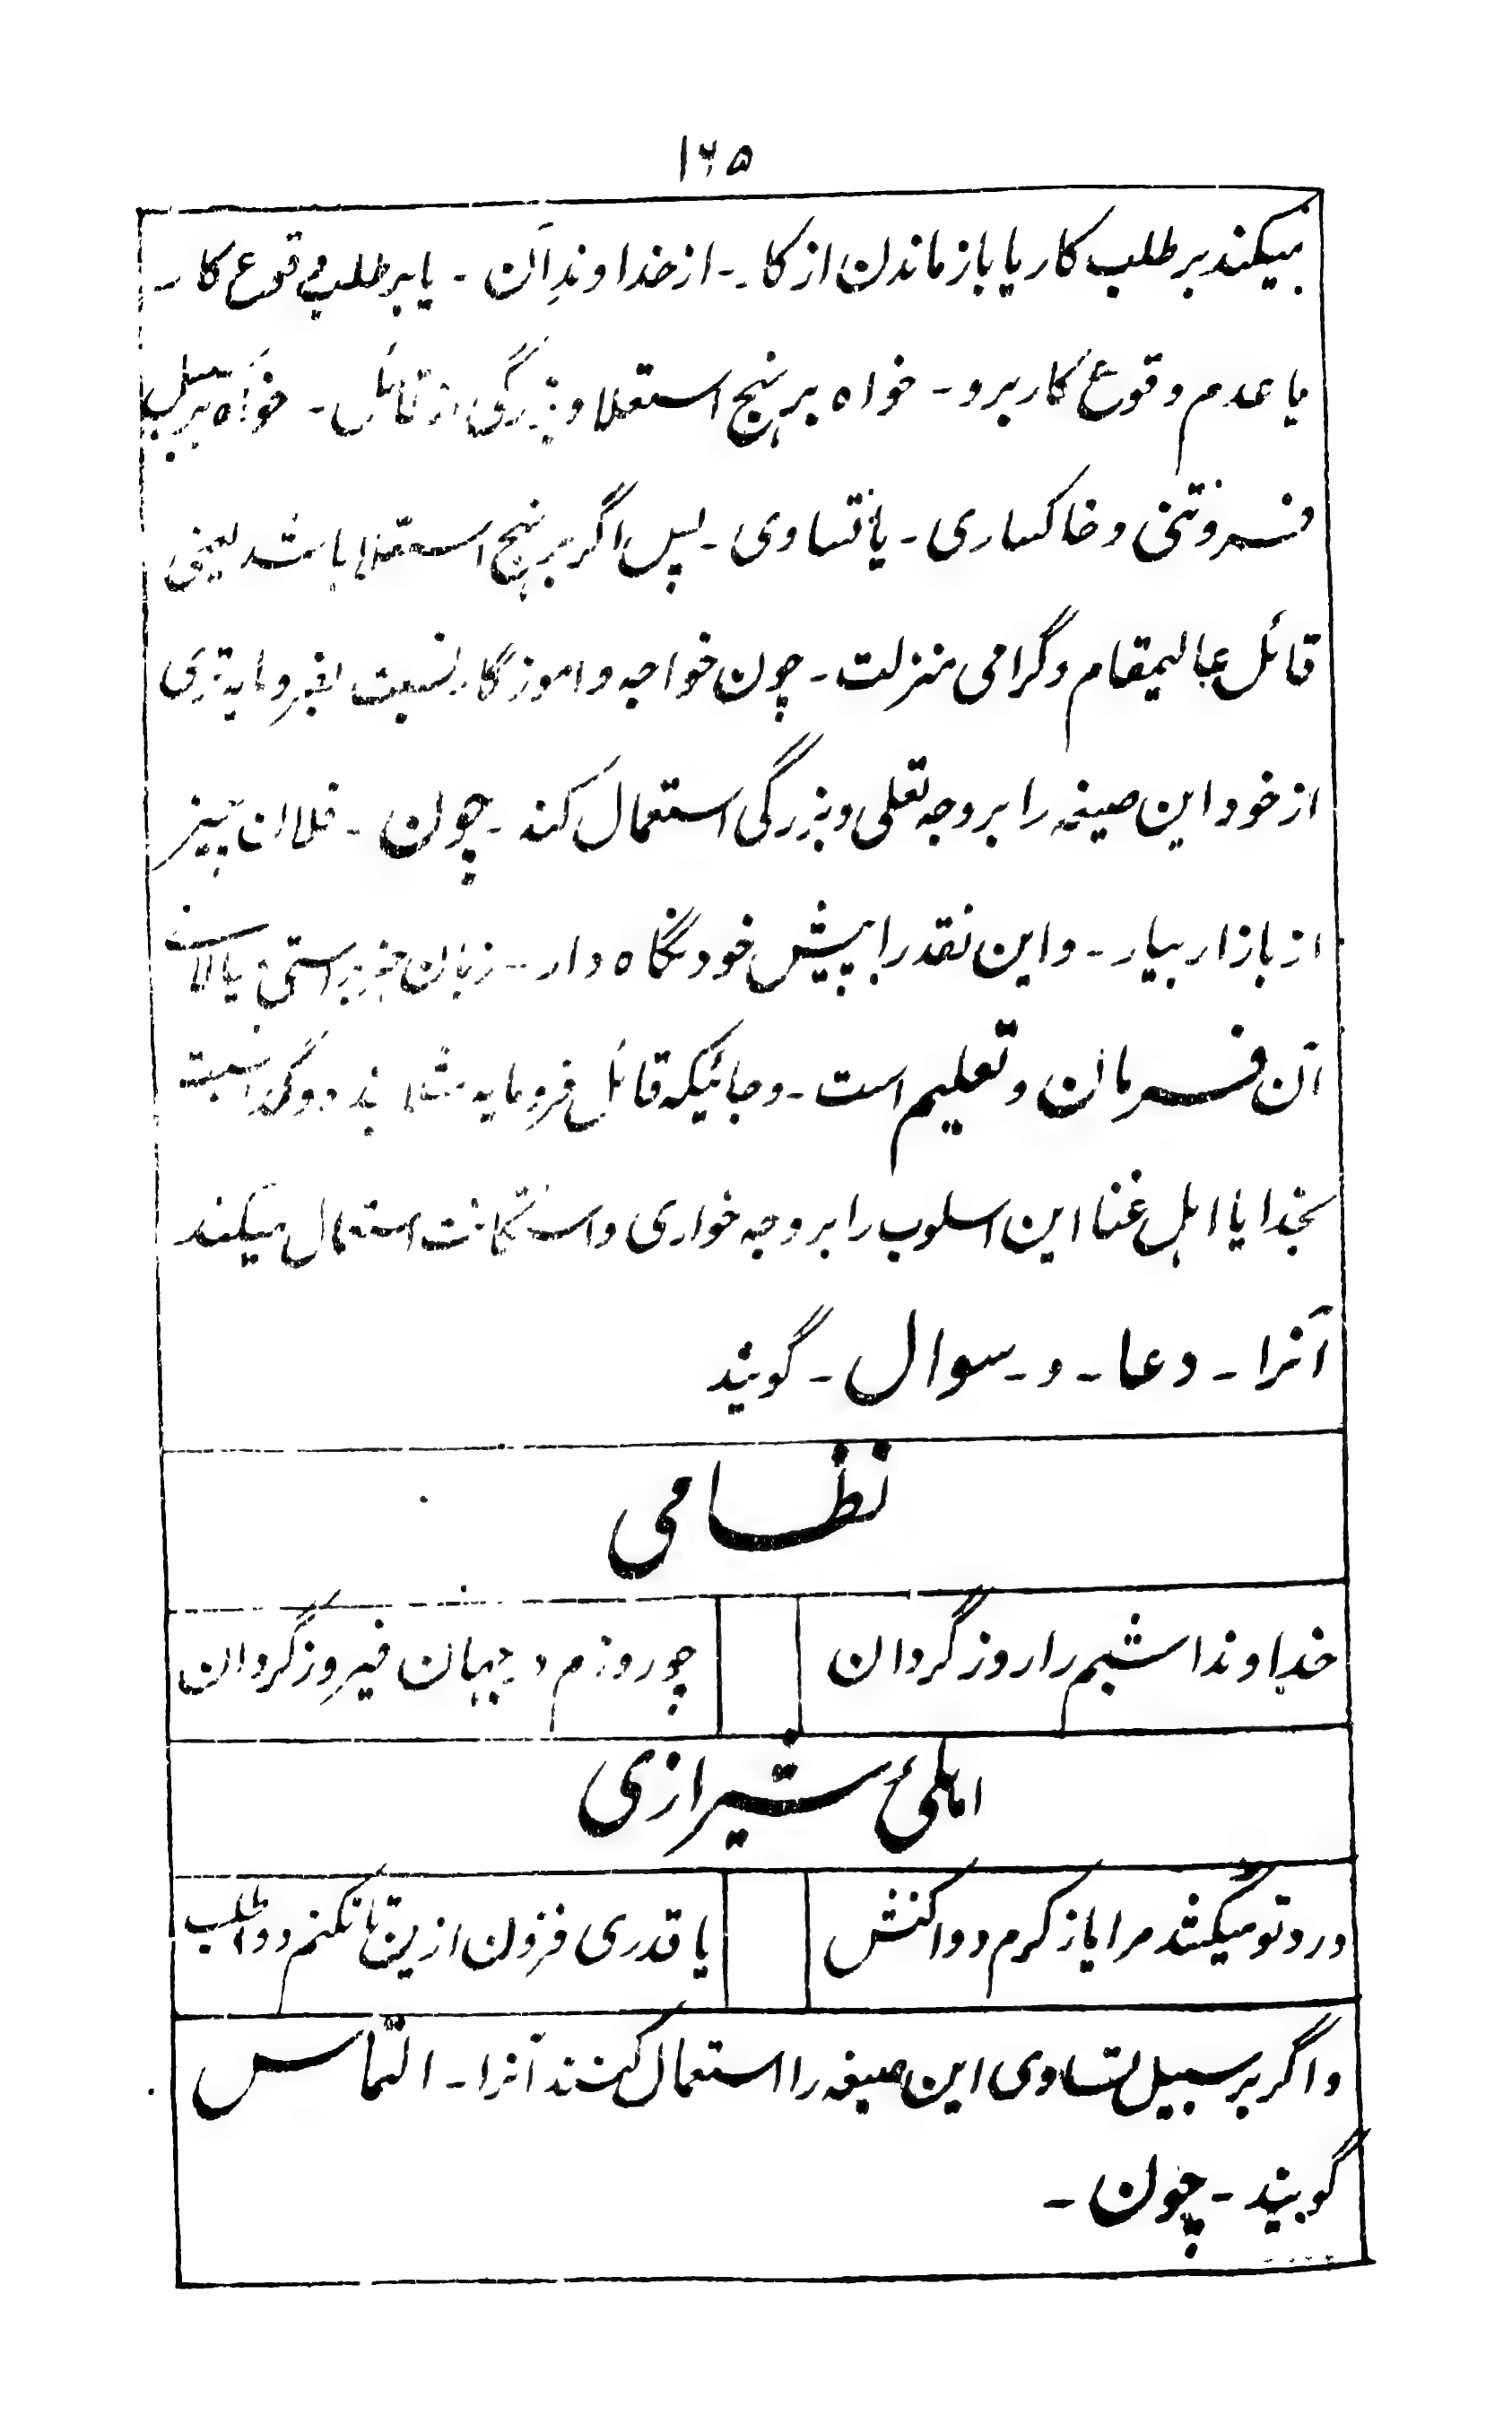 ۱۶۵
میکند بر طلب کار یا باز ماندن از کار - از خداوندِ آن - یا بر طلب وقوع کار -
یا عدم وقوع کار برو - خواه بر نہج استعلا و بزرگی از قائل - خواه بر سبیل
فروتنی و خاکساری - یا تساوی - پس اگر بر نہج استعلا باشد یعنی
قائل عالیمقام و گرامی منزلت - چون خواجه و اموزگار نسبت بفرومایه تری
از خود این صیغه را بر وجه تعلی و بزرگی استعمال کند - چون - فلان چیز
از بازار بیار - و این نقد را پیش خود نگاه دار - زبان جز براستی میالائے
آن فرمان و تعلیم است - و جائیکه قائل فرومایه مثلا بنده و گدا نسبت
بخدا یا اہل غنا این اسلوب را بر وجه خواری و استکانت استعمال میکند
آنرا - دعا - و - سوال - گویند
نظامی
خداوندا شبم را روز گردان
چو روزم در جہان فیروز گردان
اہلیٔ شیرازی
درد تو میکشد مرا یا ز کرم دوا کنش
یا قدری فزون ازین تا نکنم دوا طلب
و اگر بر سبیل تساوی این صیغه را استعمال کنند آنرا - التماس
گویند - چون -